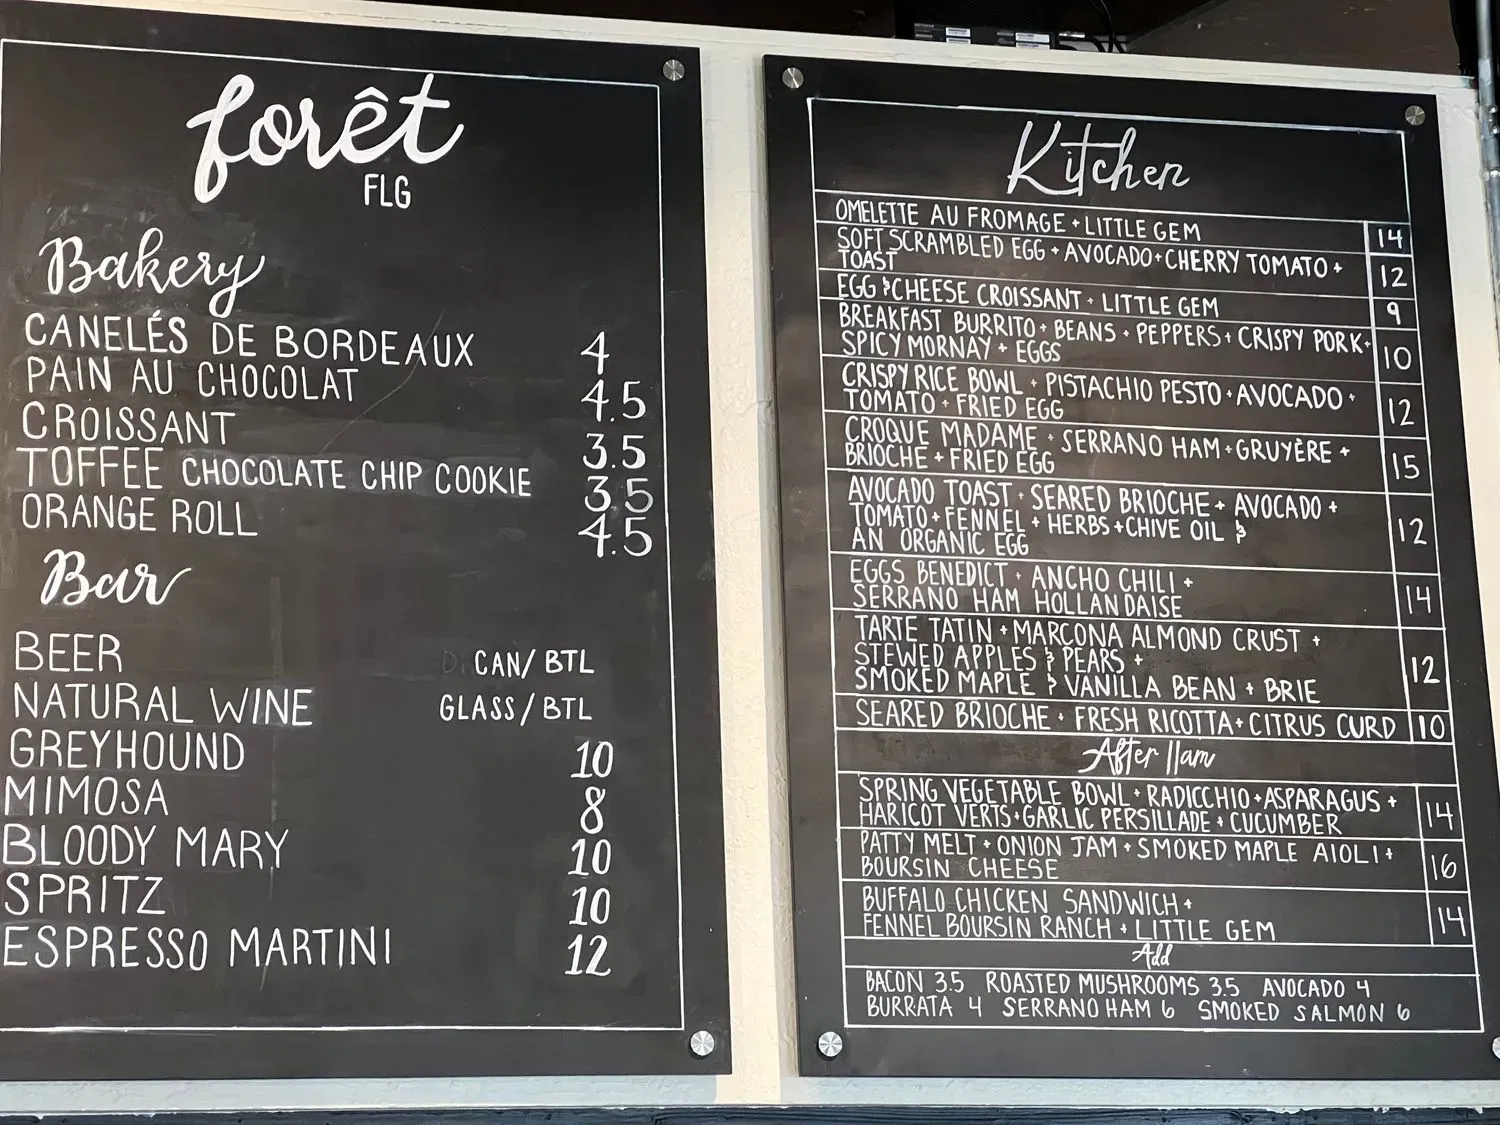 forêt
FLG
Bakery
CANELÉS DE BORDEAUX 4
PAIN AU CHOCOLAT 4.5
CROISSANT 3.5
TOFFEE CHOCOLATE CHIP COOKIE 3.5
ORANGE ROLL 4.5
Bar
BEER CAN/BTL
NATURAL WINE GLASS/BTL
GREYHOUND 10
MIMOSA 8
BLOODY MARY 10
SPRITZ 10
ESPRESSO MARTINI 12
Kitchen
OMELETTE AU FROMAGE + LITTLE GEM 14
SOFT SCRAMBLED EGG + AVOCADO + CHERRY TOMATO +
TOAST 12
EGG & CHEESE CROISSANT + LITTLE GEM 9
BREAKFAST BURRITO + BEANS + PEPPERS + CRISPY PORK +
SPICY MORNAY + EGGS 10
CRISPY RICE BOWL + PISTACHIO PESTO + AVOCADO +
TOMATO + FRIED EGG 12
CROQUE MADAME + SERRANO HAM + GRUYÈRE +
BRIOCHE + FRIED EGG 15
AVOCADO TOAST + SEARED BRIOCHE + AVOCADO +
TOMATO + FENNEL + HERBS + CHIVE OIL &
AN ORGANIC EGG 12
EGGS BENEDICT + ANCHO CHILI +
SERRANO HAM HOLLANDAISE 14
TARTE TATIN + MARCONA ALMOND CRUST +
STEWED APPLES & PEARS +
SMOKED MAPLE & VANILLA BEAN + BRIE 12
SEARED BRIOCHE + FRESH RICOTTA + CITRUS CURD 10
After 11am
SPRING VEGETABLE BOWL + RADICCHIO + ASPARAGUS +
HARICOT VERTS + GARLIC PERSILLADE + CUCUMBER 14
PATTY MELT + ONION JAM + SMOKED MAPLE AIOLI +
BOURSIN CHEESE 16
BUFFALO CHICKEN SANDWICH +
FENNEL BOURSIN RANCH + LITTLE GEM 14
Add
BACON 3.5 ROASTED MUSHROOMS 3.5 AVOCADO 4
BURRATA 4 SERRANO HAM 6 SMOKED SALMON 6